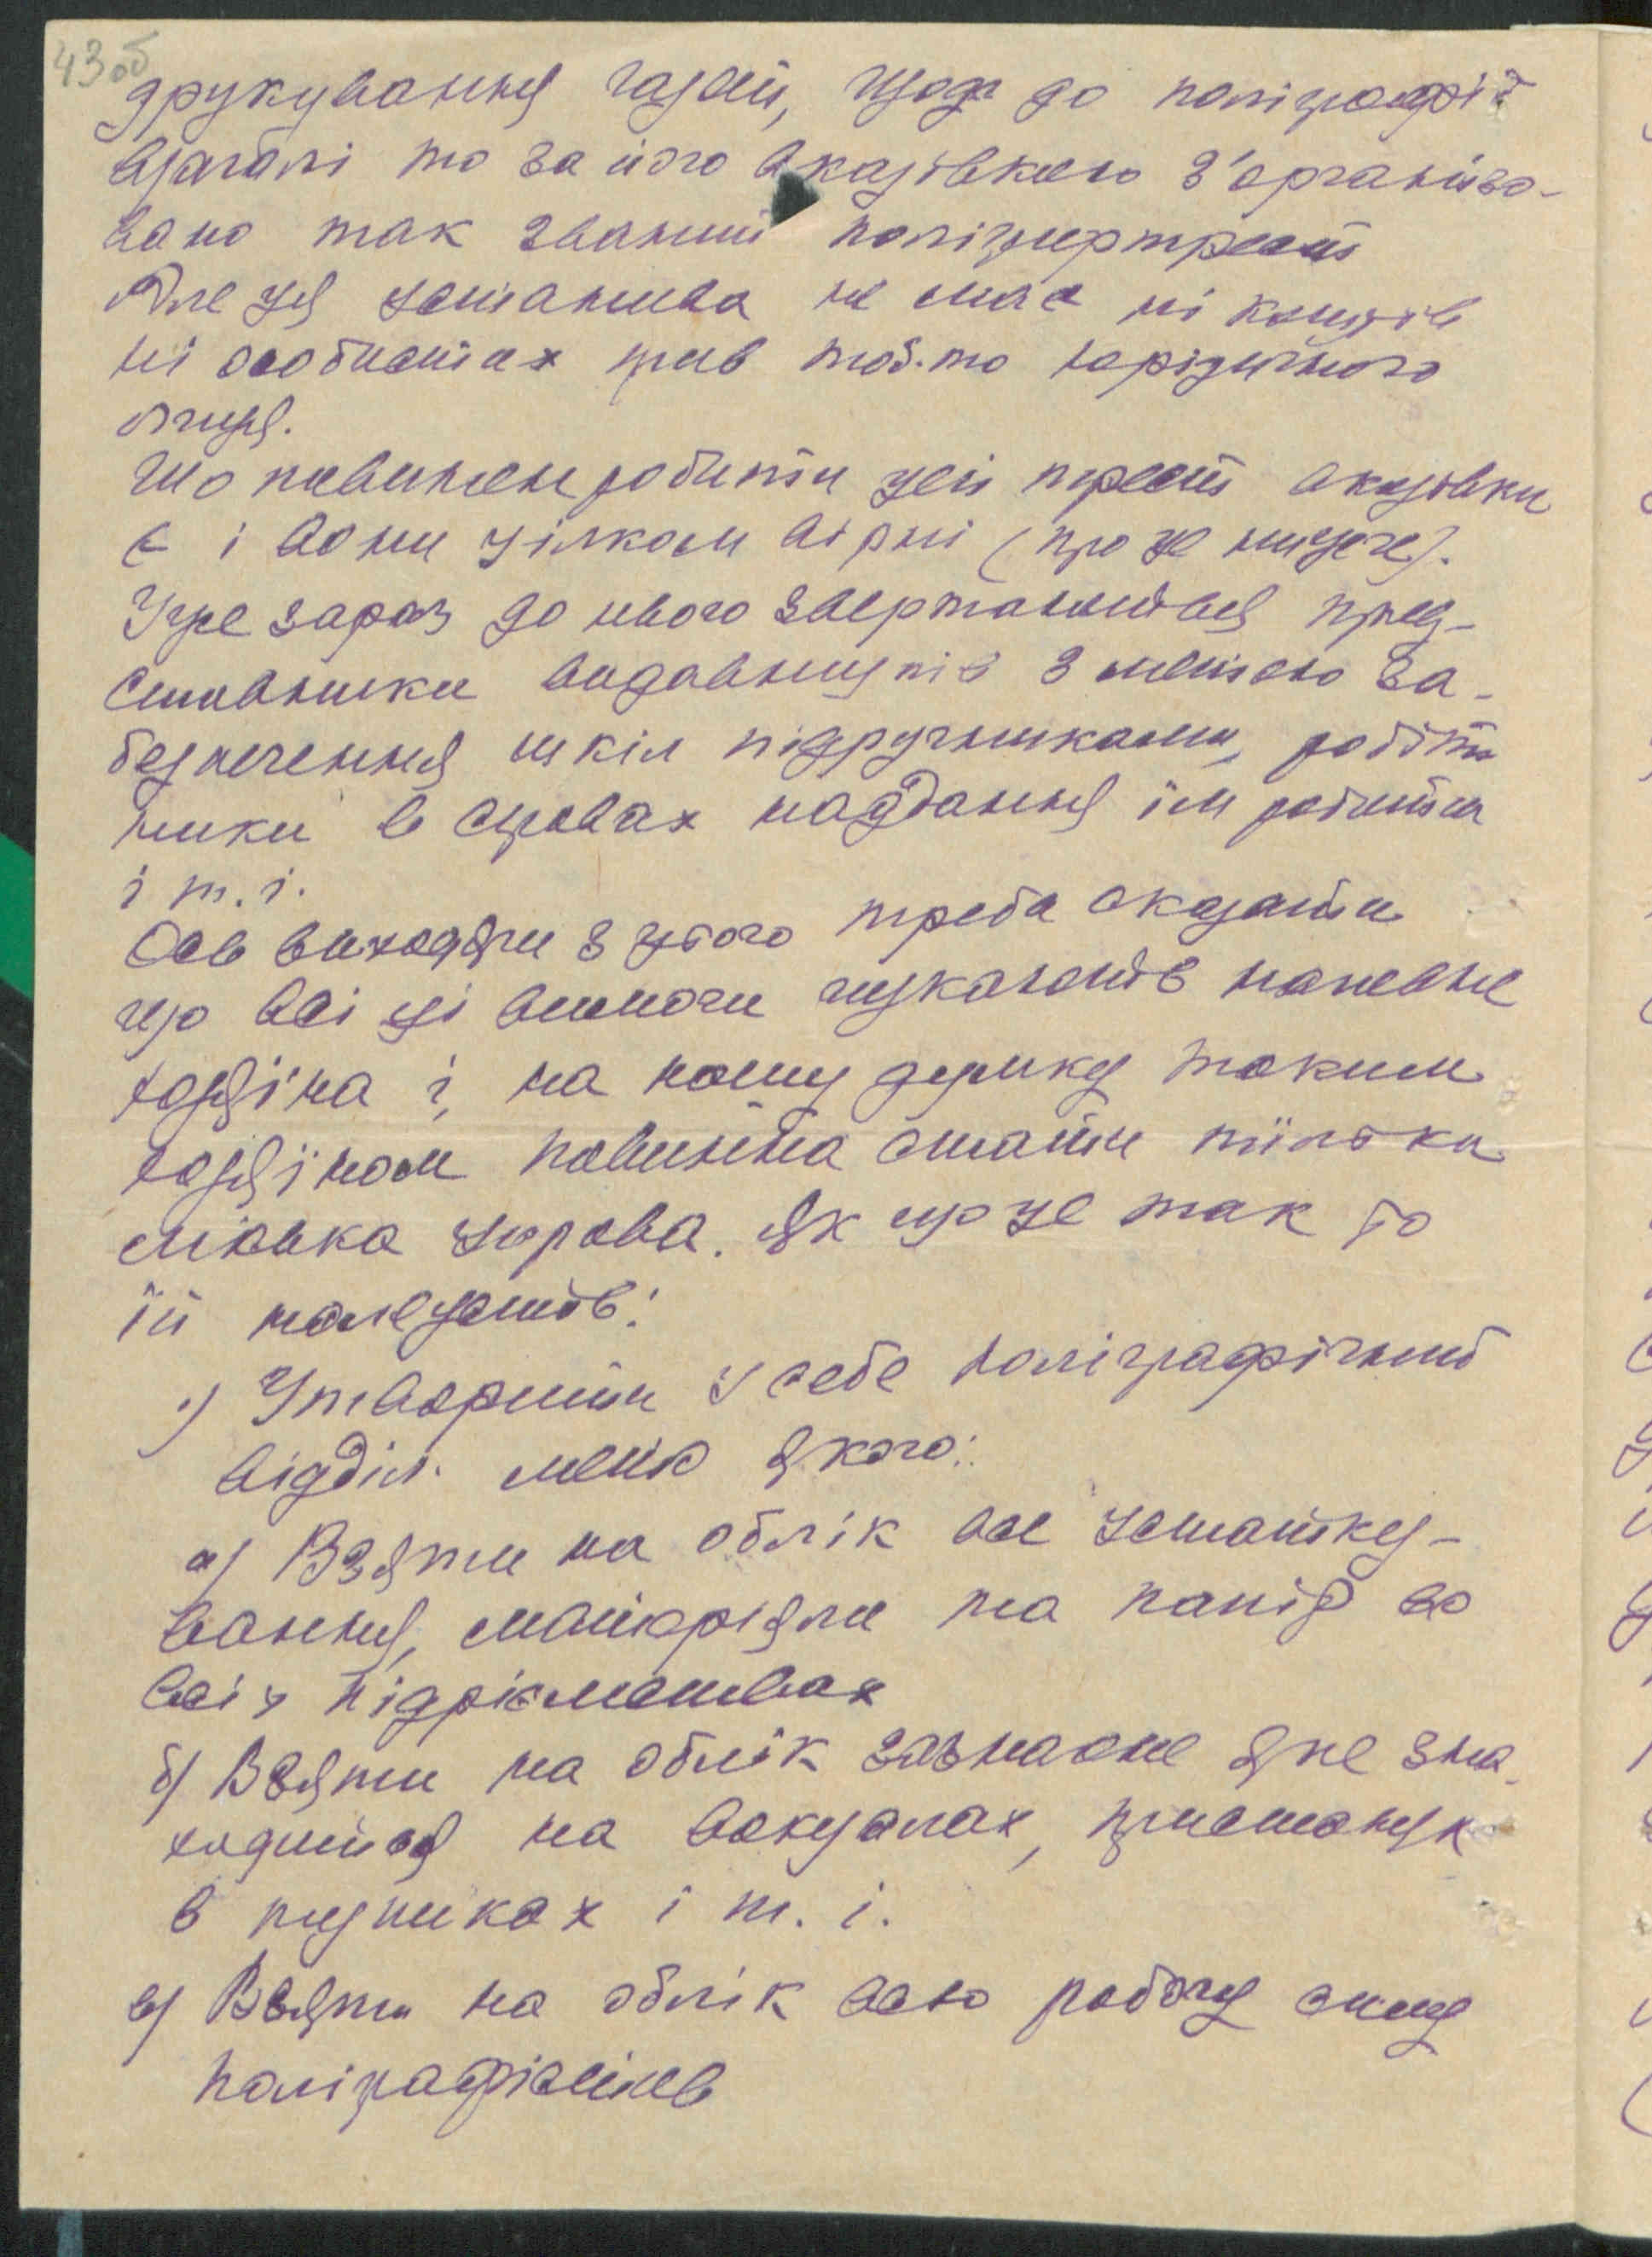 43об
друкування газет, щодо до поліграфії
взагалі то за його вказівкою з'організо-
вано так званий поліграфтрест
Але ця установа не має ні коштів
ні особистих прав тоб-то юрідичного
лиця.
Що повинен робити цей трест вказівки
є і вони цілком вірні (про це нижче).
Уже зараз до нього звертаються пред-
ставники видавництв з метою за-
безпечення шкіл підручниками, робіт-
ники в справах надання їм робити
і т. і.
Ось виходячи з цього треба сказати
що всі ці вимоги шукають напевне
хазяїна і, на нашу думку таким
хазяїном повинна стати тільки
міська управа. Як що це так то
їй належить:
1) Утворити у себе поліграфічний
відділ. мета якого:
а) Взяти на облік все устатку-
вання, матеріяли та папір во
всіх підпріємствах
б) Взяти на облік зазначене яке зна-
ходится на вокзалах, пристанях
в рудниках і т. і.
в) Взяти на облік всю робочу силу
поліграфістів